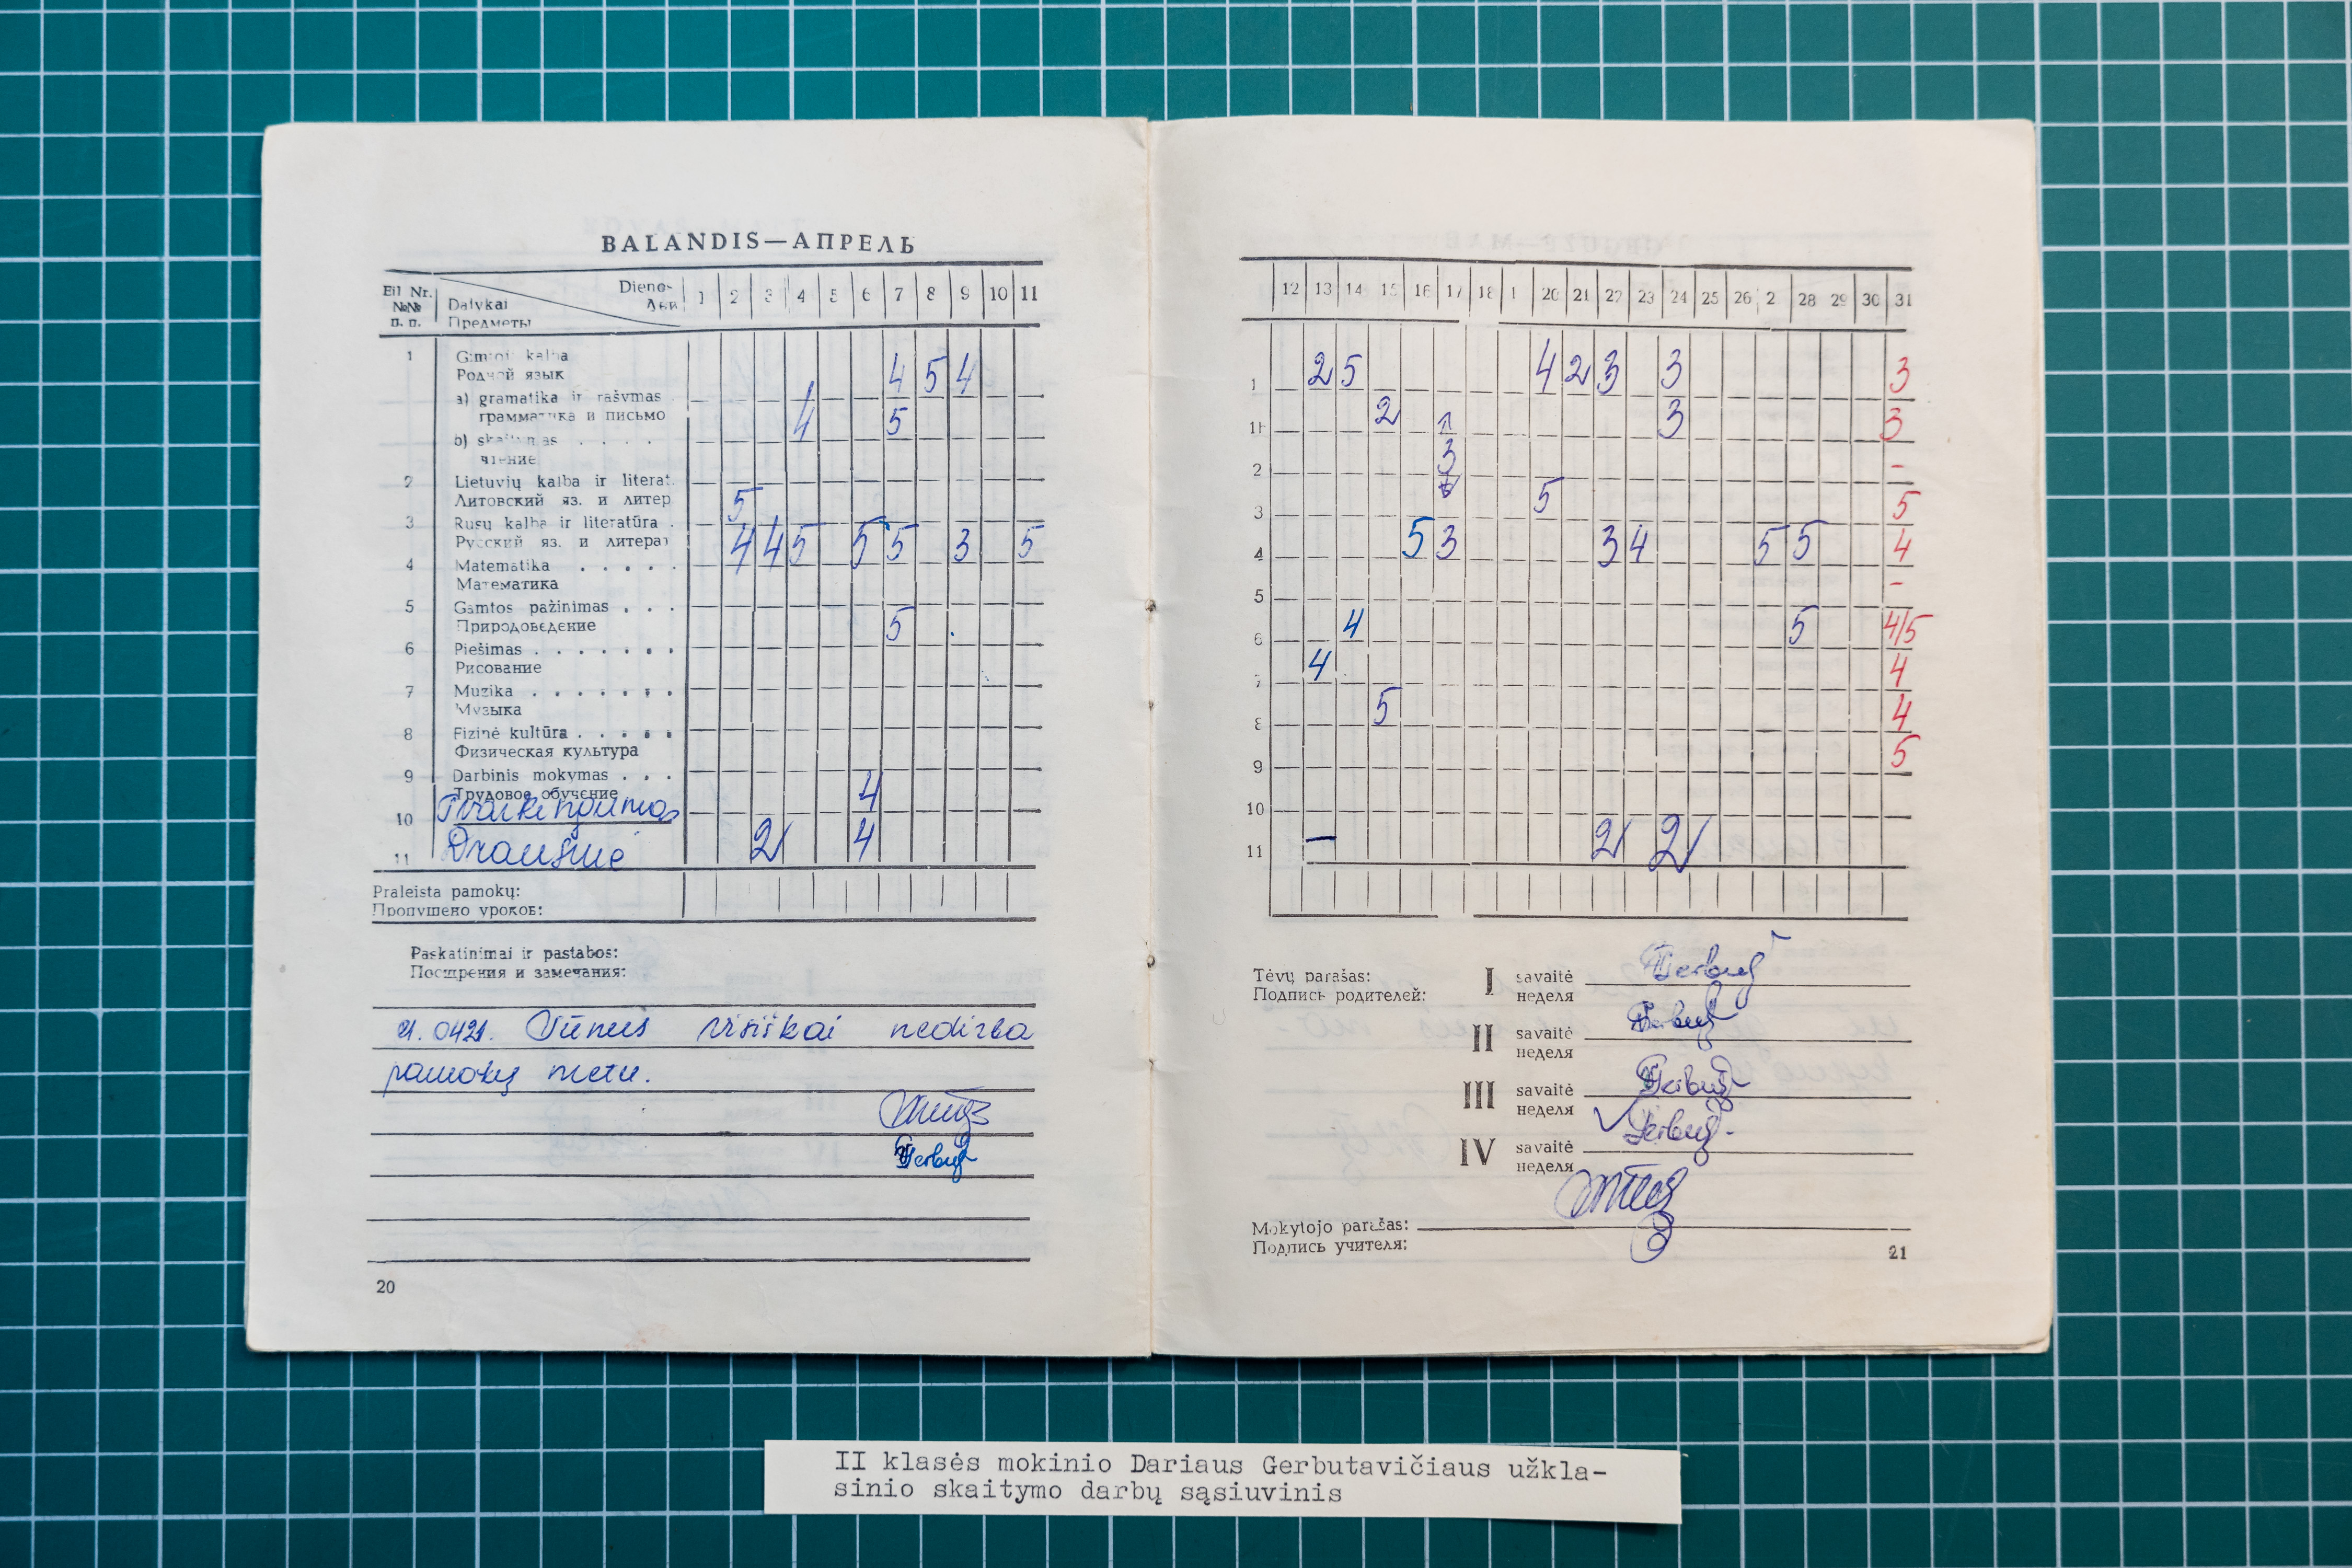 BALANDIS—АПРЕЛЬ
Eil Nr. №№ п. п.
Dalykai Предметы
Dieno- Дни
1 2 3 4 5 6 7 8 9 10 11
1 Gimtoji kalba 4 5 4
Родной язык
a) gramatika ir rašymas
грамматика и письмо 4 5
b) skaitymas . . . .
чтение
2 Lietuvių kalba ir literat.
Литовский яз. и литер 5
3 Rusų kalba ir literatūra .
Русский яз. и литерат 4 4 5 5 5 3 5
4 Matematika . . . . .
Математика
5 Gamtos pažinimas . . .
Природоведение 5
6 Piešimas . . . . . . .
Рисование
7 Muzika . . . . . . .
Музыка
8 Fizinė kultūra . . . . .
Физическая культура
9 Darbinis mokymas . . .
Трудовое обучение 4
10 Tvarkingumas
11 Drausmė 2 4
Praleista pamokų:
Пропушено уроков:
Paskatinimai ir pastabos:
Посщрения и замечания:
0421. Sūnus visiškai nedirba
pamokų metu.
20
12 13 14 15 16 17 18 1 20 21 22 23 24 25 26 2 28 29 30 31
1 2 5 4 2 3 3 3
1 2 3 3
2 3 -
3 5 5
4 5 3 3 4 5 5 4
5 -
6 4 5 4/5
7 4 4
8 5 4
9 5
10
11 — 2 2
Tėvų parašas:
Подпись родителей:
I savaitė
неделя
II savaitė
неделя
III savaitė
неделя
IV savaitė
неделя
Mokytojo parašas:
Подпись учителя:
21
II klasės mokinio Dariaus Gerbutavičiaus užkla-
sinio skaitymo darbų sąsiuvinis